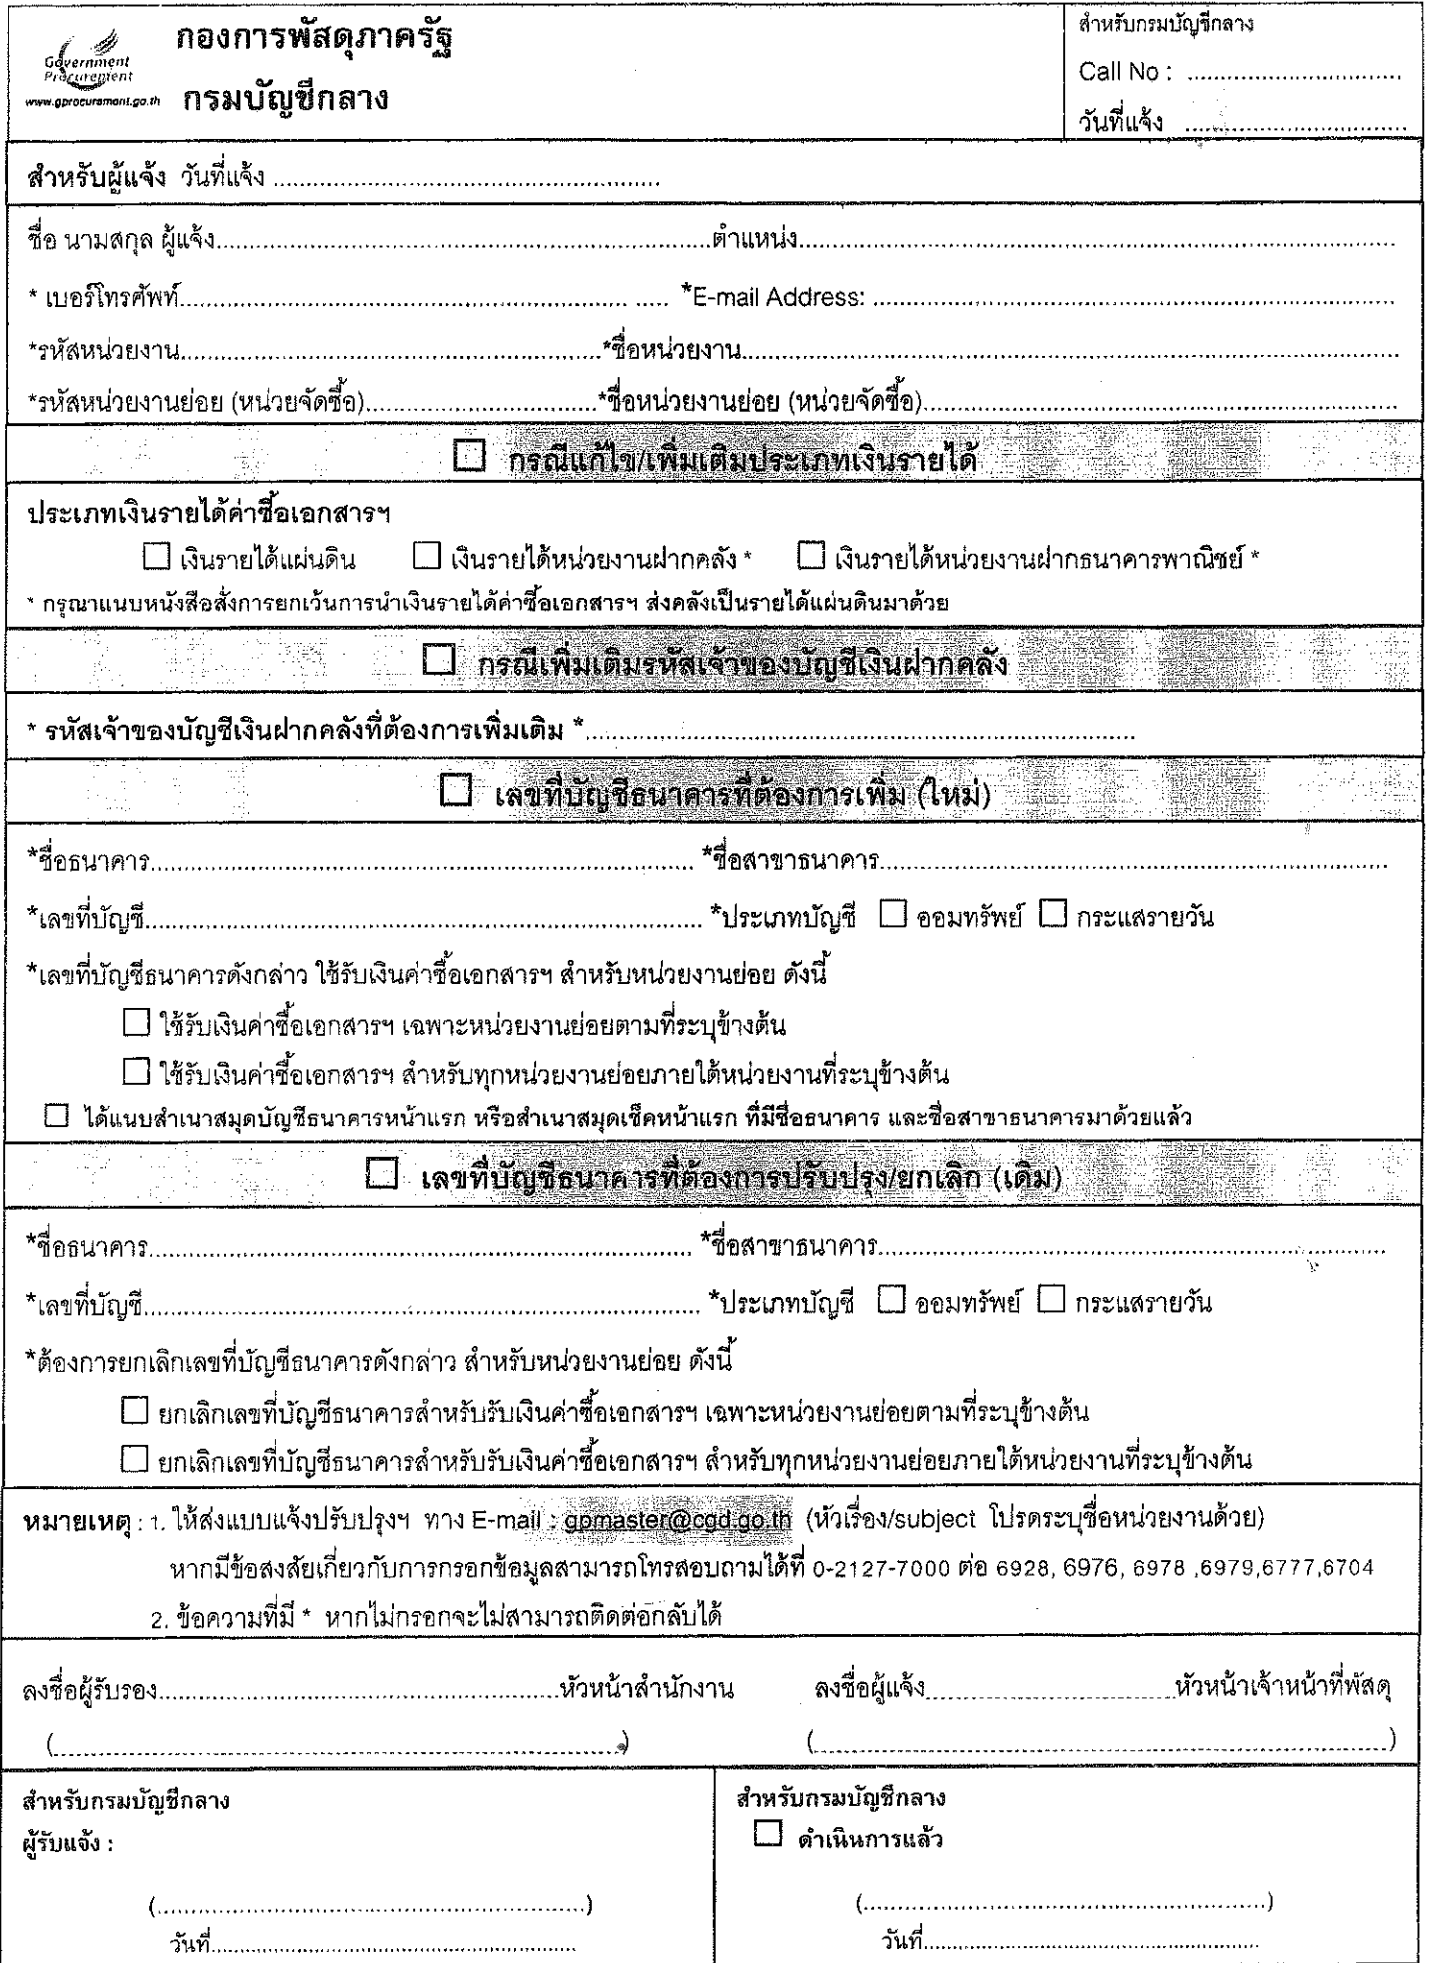 กองการพัสดุภาครัฐ
กรมบัญชีกลาง
Government
Procurement
www.gprocurement.go.th
สำหรับกรมบัญชีกลาง
Call No : ................................
วันที่แจ้ง ................................
สำหรับผู้แจ้ง วันที่แจ้ง ................................
ชื่อ นามสกุล ผู้แจ้ง................................ตำแหน่ง................................
* เบอร์โทรศัพท์................................ ..... *E-mail Address: ................................
*รหัสหน่วยงาน................................*ชื่อหน่วยงาน................................
*รหัสหน่วยงานย่อย (หน่วยจัดซื้อ)................................*ชื่อหน่วยงานย่อย (หน่วยจัดซื้อ)................................
☐ กรณีแก้ไข/เพิ่มเติมประเภทเงินรายได้
ประเภทเงินรายได้ค่าซื้อเอกสารฯ
☐ เงินรายได้แผ่นดิน ☐ เงินรายได้หน่วยงานฝากคลัง * ☐ เงินรายได้หน่วยงานฝากธนาคารพาณิชย์ *
* กรุณาแนบหนังสือสั่งการยกเว้นการนำเงินรายได้ค่าซื้อเอกสารฯ ส่งคลังเป็นรายได้แผ่นดินมาด้วย
☐ กรณีเพิ่มเติมรหัสเจ้าของบัญชีเงินฝากคลัง
* รหัสเจ้าของบัญชีเงินฝากคลังที่ต้องการเพิ่มเติม *................................
☐ เลขที่บัญชีธนาคารที่ต้องการเพิ่ม (ใหม่)
*ชื่อธนาคาร................................ *ชื่อสาขาธนาคาร................................
*เลขที่บัญชี................................ *ประเภทบัญชี ☐ ออมทรัพย์ ☐ กระแสรายวัน
*เลขที่บัญชีธนาคารดังกล่าว ใช้รับเงินค่าซื้อเอกสารฯ สำหรับหน่วยงานย่อย ดังนี้
☐ ใช้รับเงินค่าซื้อเอกสารฯ เฉพาะหน่วยงานย่อยตามที่ระบุข้างต้น
☐ ใช้รับเงินค่าซื้อเอกสารฯ สำหรับทุกหน่วยงานย่อยภายใต้หน่วยงานที่ระบุข้างต้น
☐ ได้แนบสำเนาสมุดบัญชีธนาคารหน้าแรก หรือสำเนาสมุดเช็คหน้าแรก ที่มีชื่อธนาคาร และชื่อสาขาธนาคารมาด้วยแล้ว
☐ เลขที่บัญชีธนาคารที่ต้องการปรับปรุง/ยกเลิก (เดิม)
*ชื่อธนาคาร................................ *ชื่อสาขาธนาคาร................................
*เลขที่บัญชี................................ *ประเภทบัญชี ☐ ออมทรัพย์ ☐ กระแสรายวัน
*ต้องการยกเลิกเลขที่บัญชีธนาคารดังกล่าว สำหรับหน่วยงานย่อย ดังนี้
☐ ยกเลิกเลขที่บัญชีธนาคารสำหรับรับเงินค่าซื้อเอกสารฯ เฉพาะหน่วยงานย่อยตามที่ระบุข้างต้น
☐ ยกเลิกเลขที่บัญชีธนาคารสำหรับรับเงินค่าซื้อเอกสารฯ สำหรับทุกหน่วยงานย่อยภายใต้หน่วยงานที่ระบุข้างต้น
หมายเหตุ : 1. ให้ส่งแบบแจ้งปรับปรุงฯ ทาง E-mail : gpmaster@cgd.go.th (หัวเรื่อง/subject โปรดระบุชื่อหน่วยงานด้วย)
หากมีข้อสงสัยเกี่ยวกับการกรอกข้อมูลสามารถโทรสอบถามได้ที่ 0-2127-7000 ต่อ 6928, 6976, 6978 ,6979,6777,6704
2. ข้อความที่มี * หากไม่กรอกจะไม่สามารถติดต่อกลับได้
ลงชื่อผู้รับรอง................................หัวหน้าสำนักงาน ลงชื่อผู้แจ้ง................................หัวหน้าเจ้าหน้าที่พัสดุ
(................................) (................................)
สำหรับกรมบัญชีกลาง
ผู้รับแจ้ง :
(................................)
วันที่................................
สำหรับกรมบัญชีกลาง
☐ ดำเนินการแล้ว
(................................)
วันที่................................